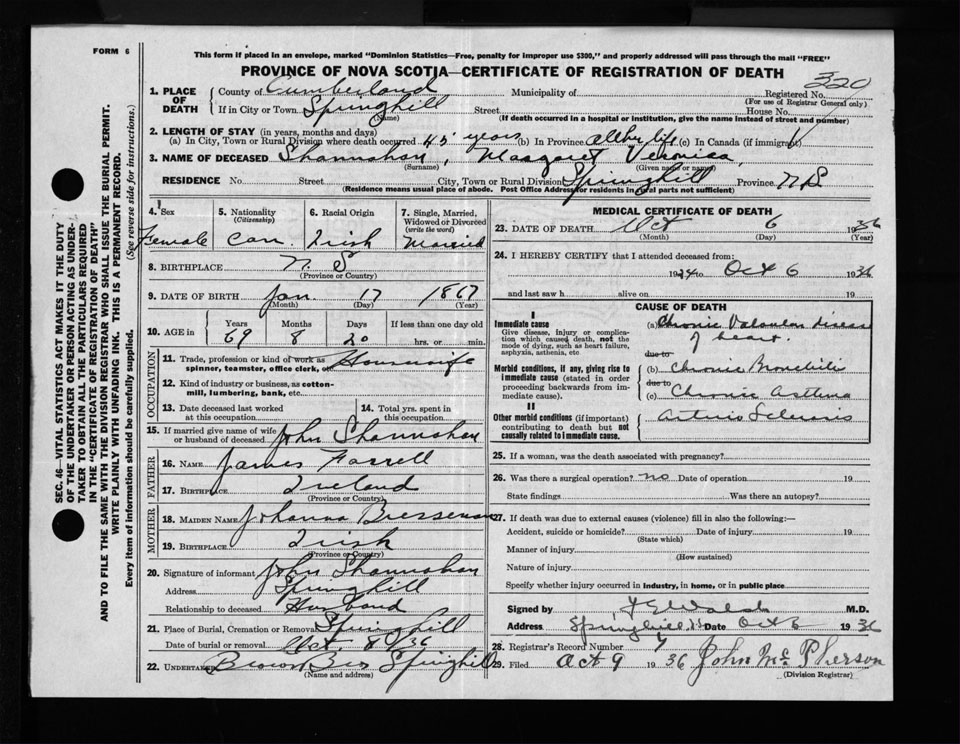 FORM 6
This form if placed in an envelope, marked "Dominion Statistics—Free, penalty for improper use $300," and properly addressed will pass through the mail "FREE"
PROVINCE OF NOVA SCOTIA—CERTIFICATE OF REGISTRATION OF DEATH
320
1. PLACE OF DEATH
County of Cumberland Municipality of Registered No.
(For use of Registrar General only)
If in City or Town Springhill Street House No.
(Name) (If death occurred in a hospital or institution, give the name instead of street and number)
2. LENGTH OF STAY (in years, months and days)
(a) In City, Town or Rural Division where death occurred 45 years (b) In Province All her life (c) In Canada (if immigrant)
3. NAME OF DECEASED Shannahan, Margaret Veronica
(Surname) (Given name or names)
RESIDENCE No. Street City, Town or Rural Division Springhill Province N S
(Residence means usual place of abode. Post Office Address for residents in rural parts not sufficient)
4. Sex
Female
5. Nationality
(Citizenship)
Can.
6. Racial Origin
Irish
7. Single, Married, Widowed or Divorced
(write the word)
Married
8. BIRTHPLACE N. S
(Province or Country)
9. DATE OF BIRTH Jan. 17 1867
(Month) (Day) (Year)
10. AGE in
Years Months Days If less than one day old
69 8 20 hrs. or min.
OCCUPATION
11. Trade, profession or kind of work as spinner, teamster, office clerk, Housewife
12. Kind of industry or business, as cotton-mill, lumbering, bank, etc.
13. Date deceased last worked at this occupation
14. Total yrs. spent in this occupation
15. If married give name of wife or husband of deceased John Shannahan
FATHER
16. NAME James Farrell
17. BIRTHPLACE Ireland
(Province or Country)
MOTHER
18. MAIDEN NAME Johanna
19. BIRTHPLACE Irish
(Province or Country)
20. Signature of informant John Shannahan
Address Springhill
Relationship to deceased Husband
21. Place of Burial, Cremation or Removal Springhill
Date of burial or removal Oct. 8/36
22. UNDERTAKER Brown Bros Springhill
(Name and address)
MEDICAL CERTIFICATE OF DEATH
23. DATE OF DEATH Oct 6 1936
(Month) (Day) (Year)
24. I HEREBY CERTIFY that I attended deceased from:
1934 to Oct 6 1936
and last saw h alive on 19
CAUSE OF DEATH
I
Immediate cause
Give disease, injury or complication which caused death, not the mode of dying, such as heart failure, asphyxia, asthenia, etc
(a) Chronic Valvular disease of heart.
due to
Morbid conditions, if any, giving rise to immediate cause (stated in order proceeding backwards from immediate cause).
(b) Chronic Bronchitis
due to
(c) Chronic Asthma
II
Other morbid conditions (if important) contributing to death but not causally related to immediate cause.
Arterio Sclerosis
25. If a woman, was the death associated with pregnancy?
26. Was there a surgical operation? no Date of operation 19
State findings Was there an autopsy?
27. If death was due to external causes (violence) fill in also the following:—
Accident, suicide or homicide? Date of injury 19
(State which)
Manner of injury
(How sustained)
Nature of injury
Specify whether injury occurred in industry, in home, or in public place
Signed by Walsh M.D.
Address Springhill Date Oct 6 1936
28. Registrar's Record Number
29. Filed Oct 9 1936 John McPherson
(Division Registrar)
SEC. 46—VITAL STATISTICS ACT MAKES IT THE DUTY
OF THE UNDERTAKER OR PERSON ACTING AS UNDER-
TAKER TO OBTAIN ALL THE PARTICULARS REQUIRED
IN THE "CERTIFICATE OF REGISTRATION OF DEATH"
AND TO FILE THE SAME WITH THE DIVISION REGISTRAR WHO SHALL ISSUE THE BURIAL PERMIT.
WRITE PLAINLY WITH UNFADING INK. THIS IS A PERMANENT RECORD.
Every item of information should be carefully supplied. (See reverse side for instructions.)